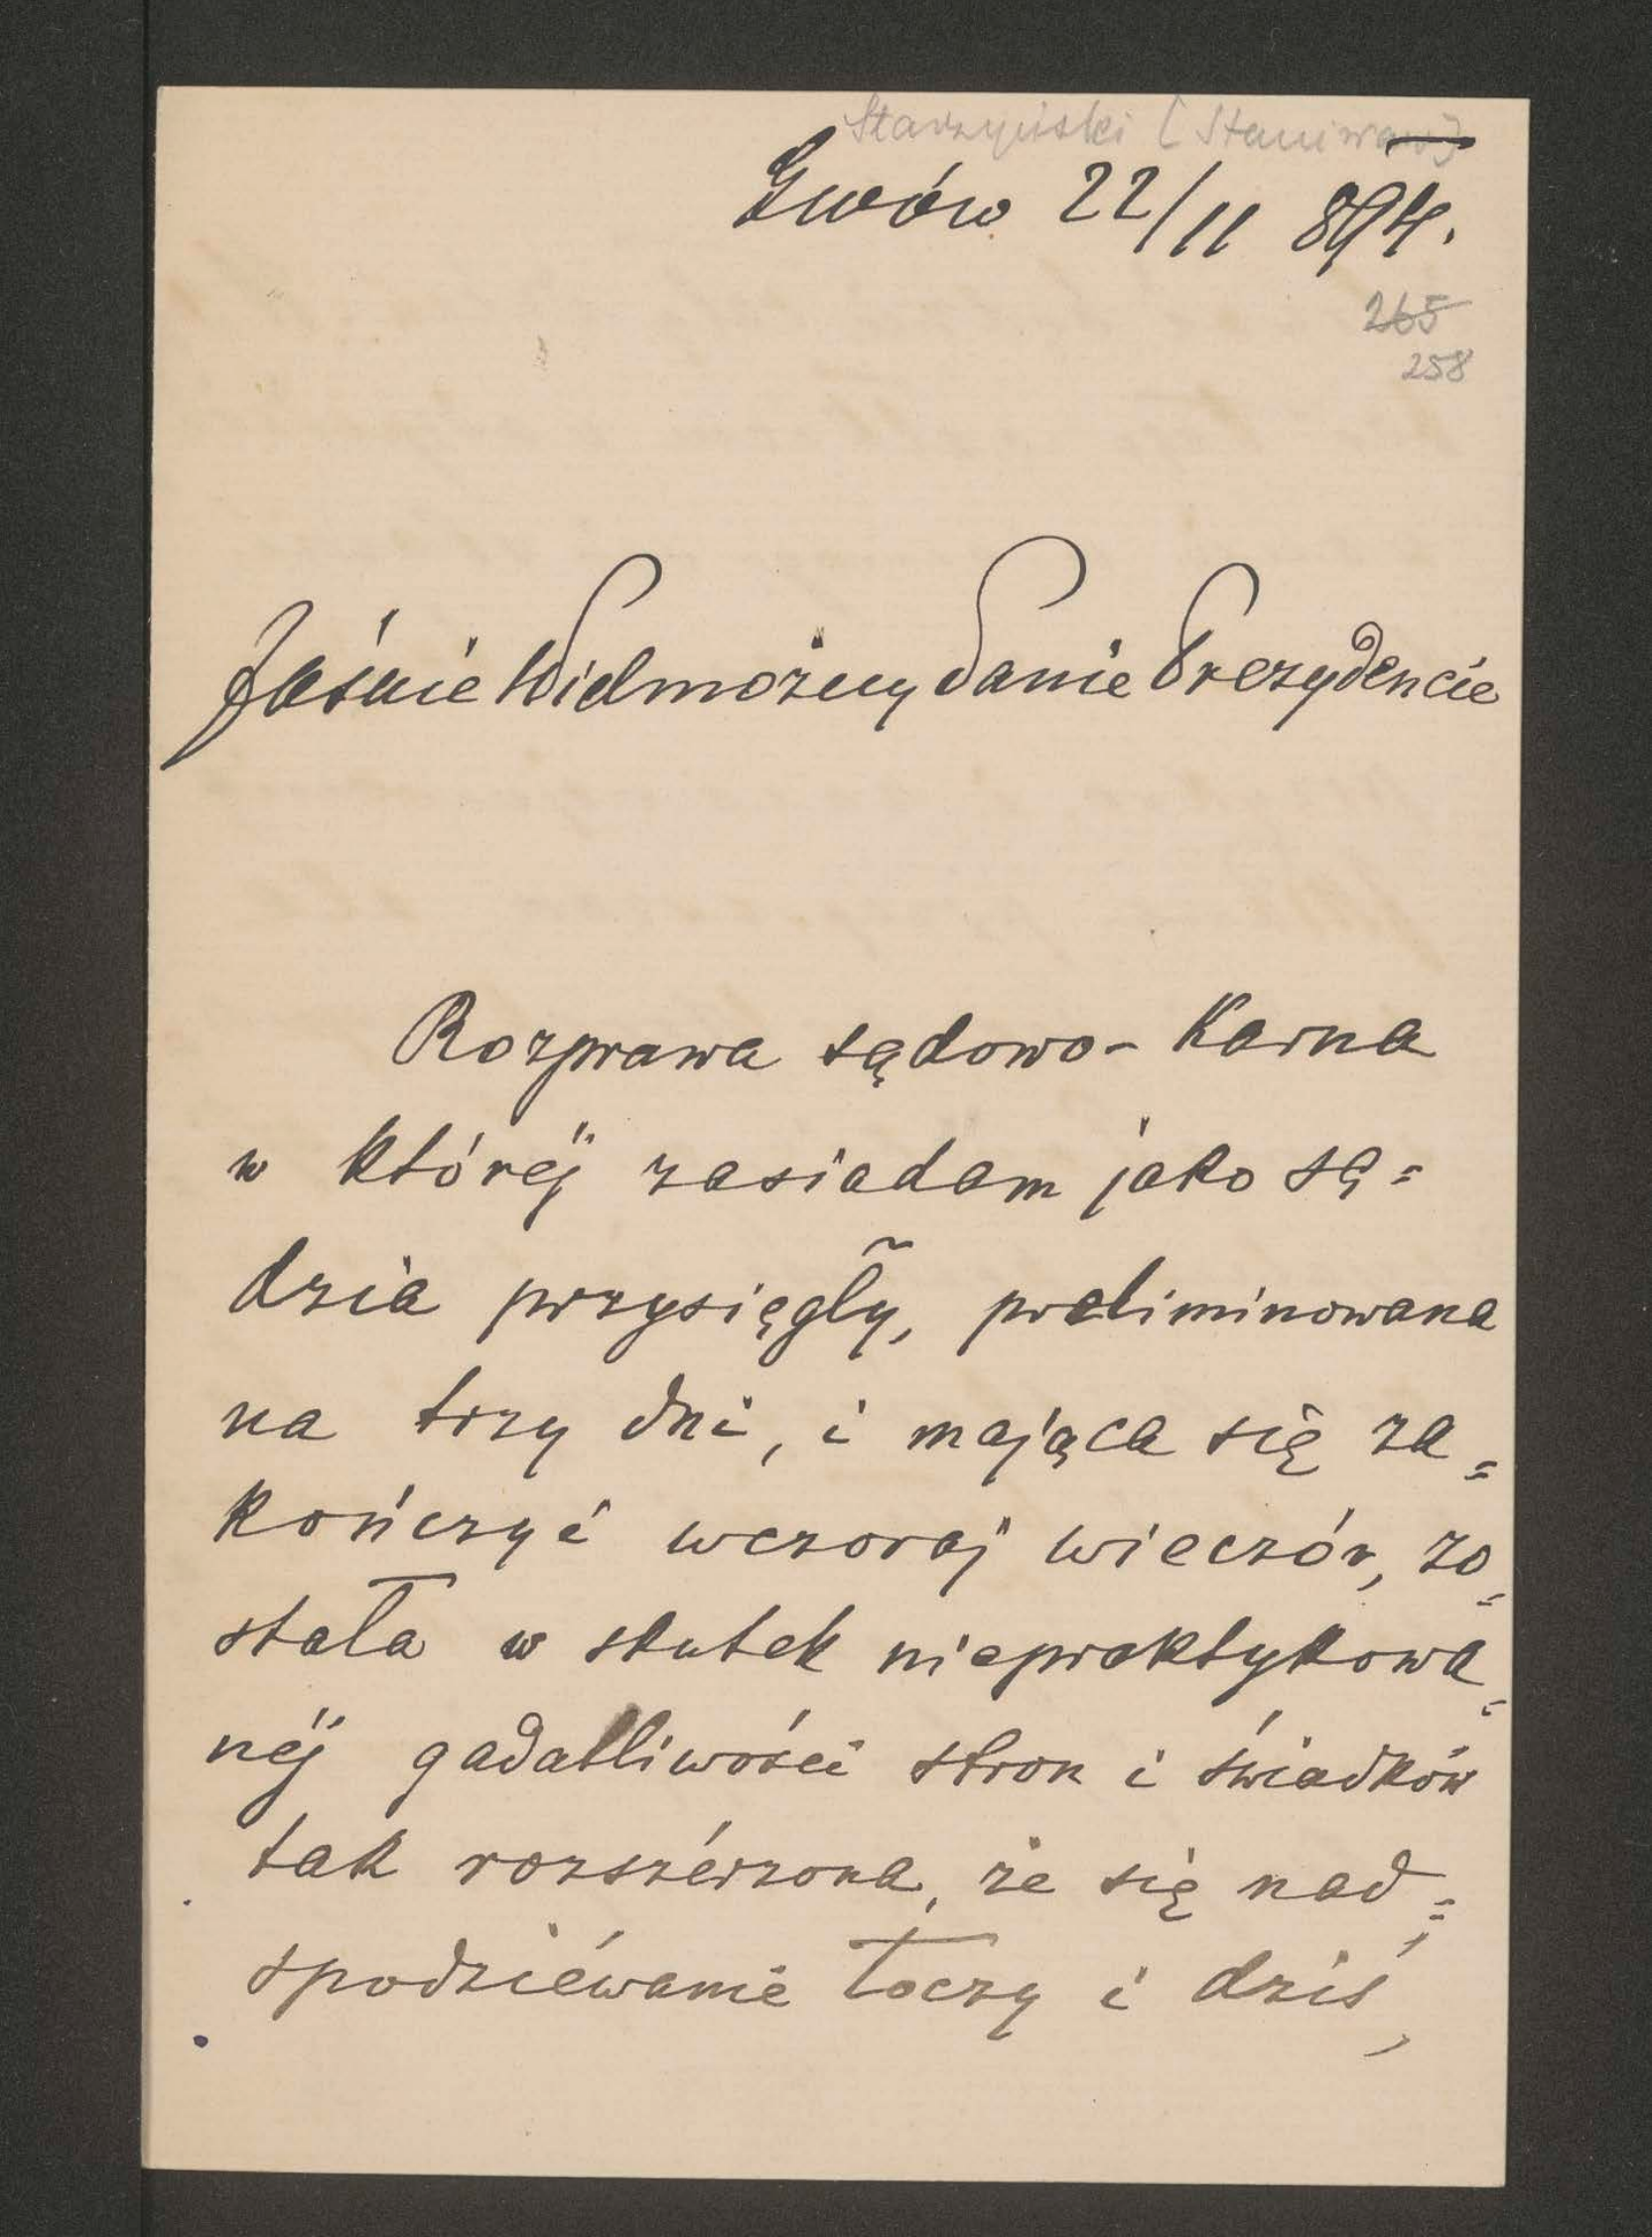 Starzyński [Stanisław]
Lwów 22/11 894.
265
258
Jaśnie Wielmożny Panie Prezydencie
Rozprawa sądowo-Karna
w któréj zasiadam jako są=
dzia przysięgły, preliminowana
na trzy dni, i mająca się za=
kończyć wczoraj wieczór, zo=
stała w skutek niepraktykowa=
néj gadatliwości stron i świadków
tak rozszérzona, że się nad=
spodziéwanie toczy i dziś,